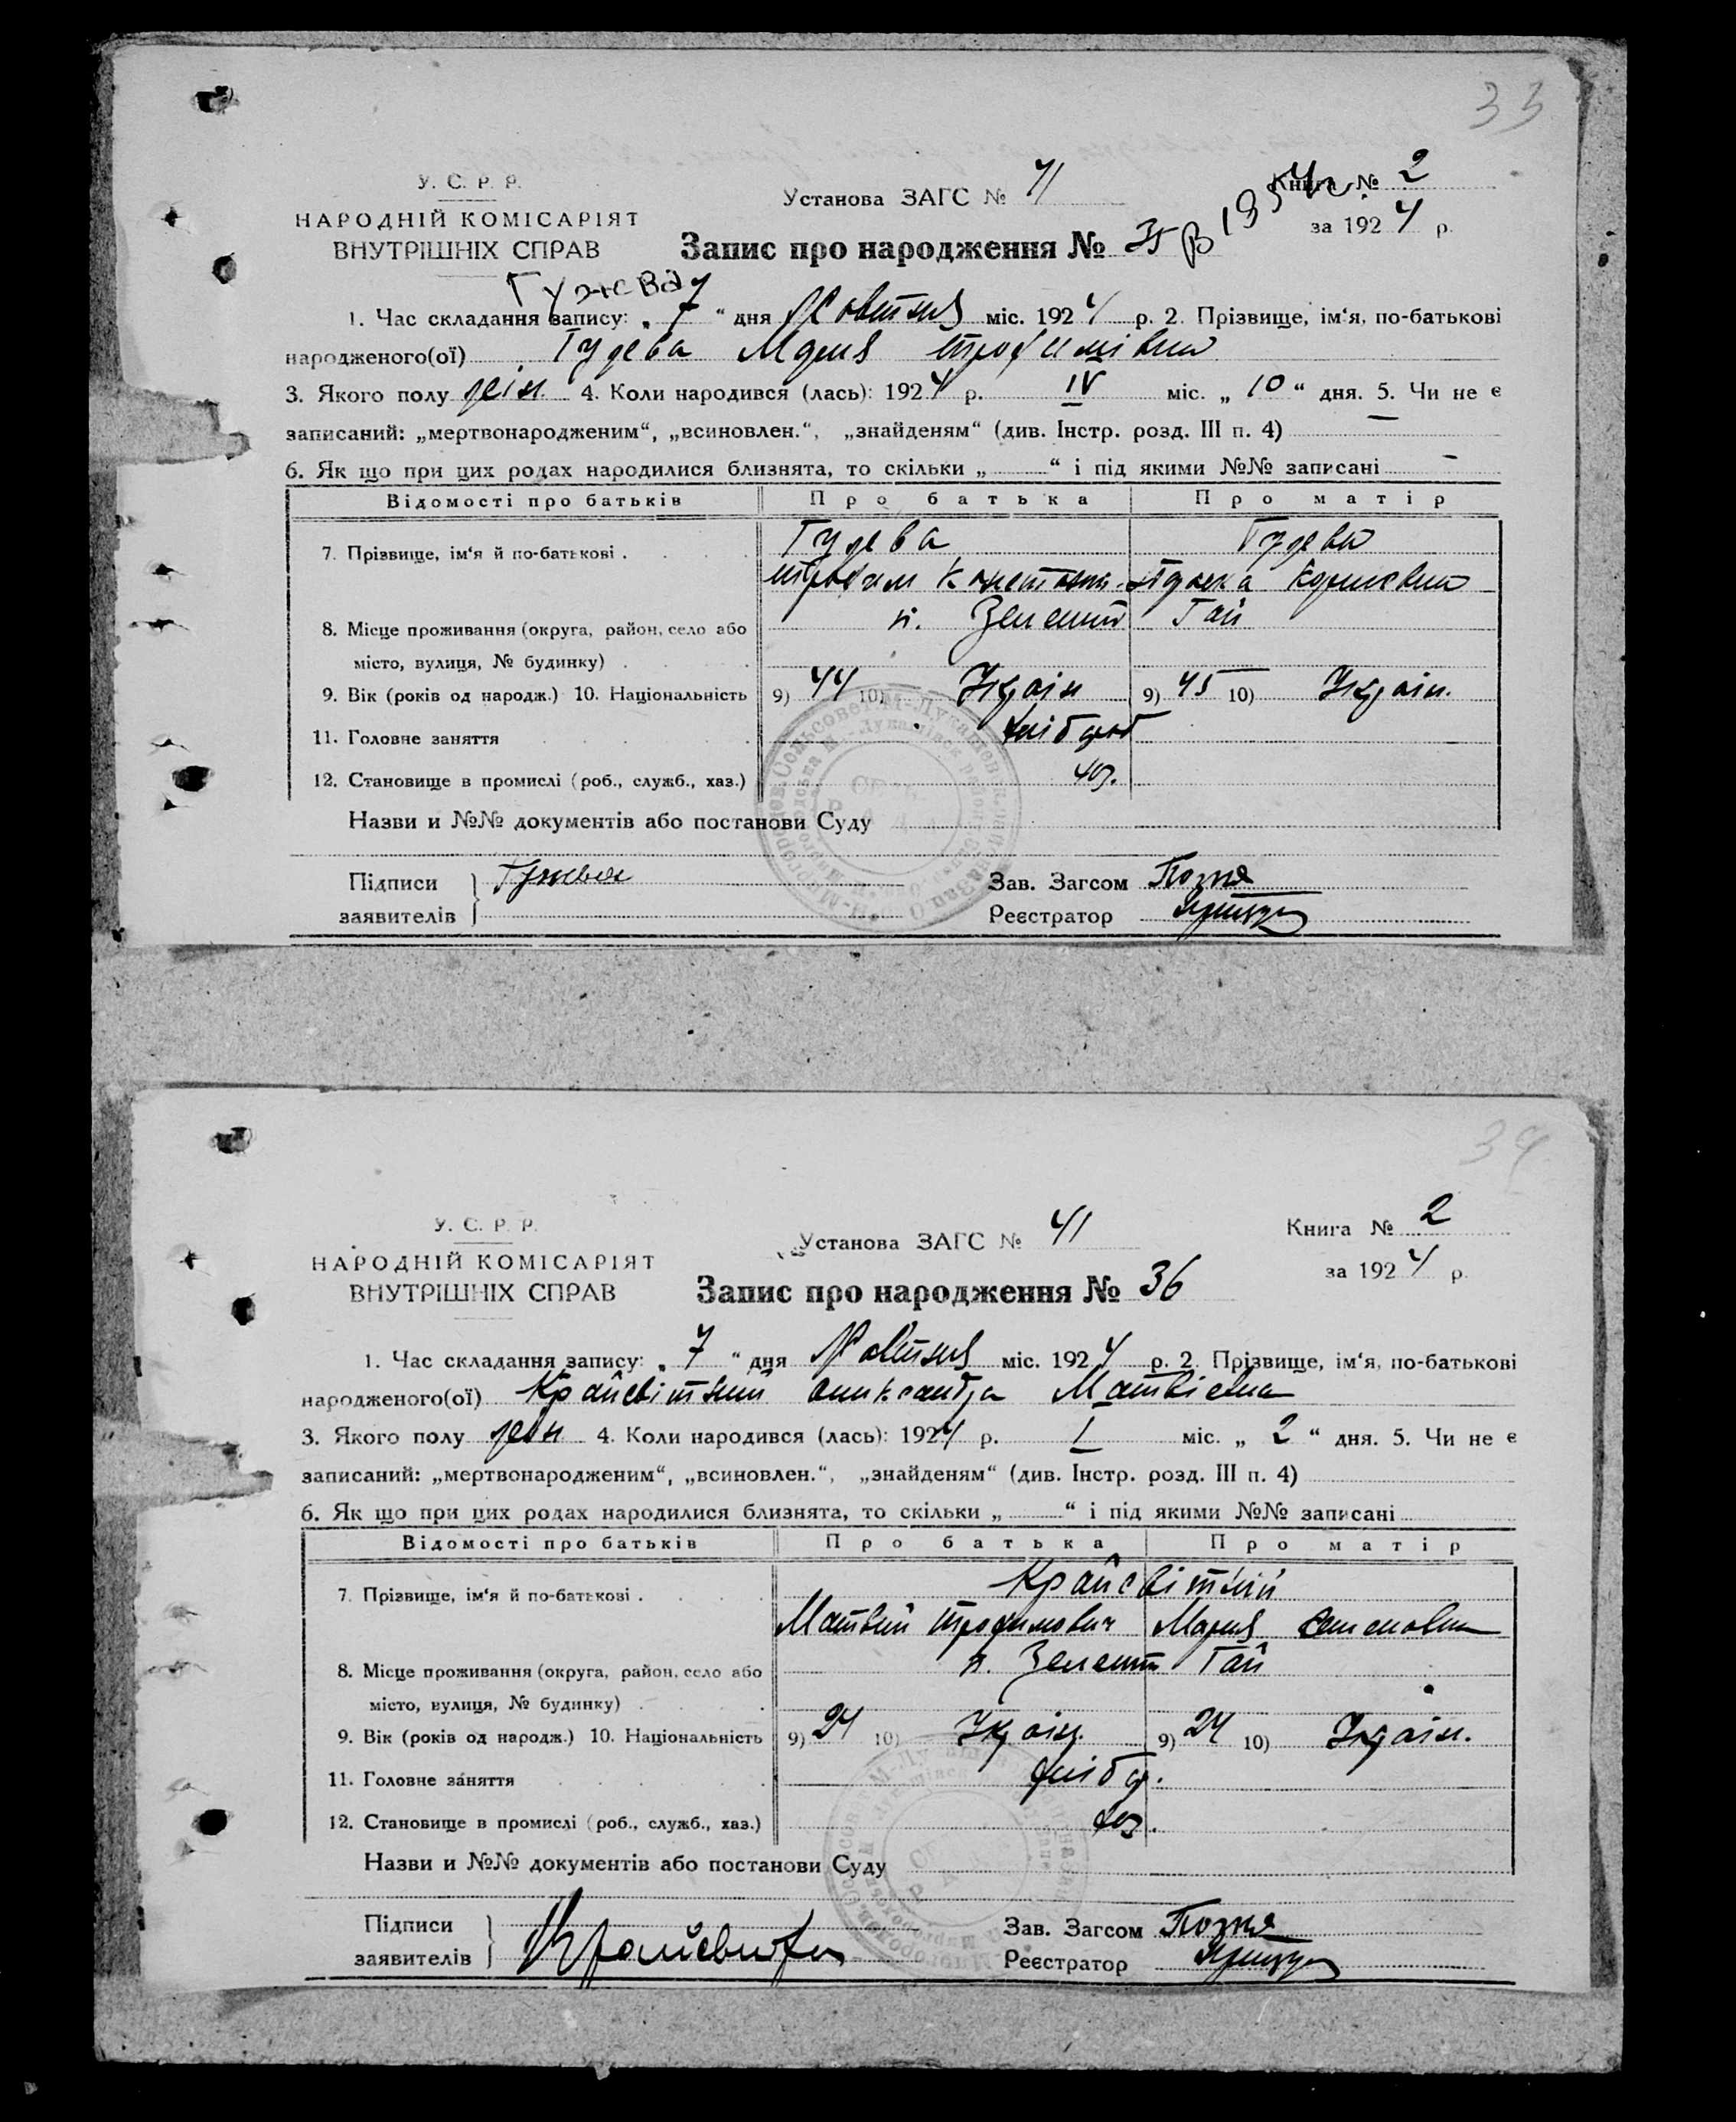 33
У. С. Р. Р.
НАРОДНІЙ КОМІСАРІЯТ
ВНУТРІШНІХ СПРАВ
Установа ЗАГС № 41
Книга № 2
за 1924 р.
Запис про народження № 35
Гужева
1. Час складання запису: „ 7 “ дня Жовтня міс. 1924 р. 2. Прізвище, ім‘я, по-батькові
народженого(ої) Гудева Мария Трофимівна
3. Якого полу жін. 4. Коли народився (лась): 1924 р. IV міс. „ 10 “ дня. 5. Чи не є
записаний: „мертвонародженим“, „всиновлен.“, „знайденям“ (див. Інстр. розд. III п. 4) —
6. Як що при цих родах народилися близнята, то скільки „ “ і під якими №№ записані -
Відомості про батьків Про батька Про матір
7. Прізвище, ім‘я й по-батькові . Гудева Гудева
Трофим Констант.
8. Місце проживання (округа, район, село або х. Зелений Гай
місто, вулиця, № будинку) .
9. Вік (років од народж.) 10. Національність 9) 44 10) Україн 9) 45 10) Україн.
11. Головне заняття хлібороб
12. Становище в промислі (роб., служб., хаз.) хоз.
Назви и №№ документів або постанови Суду
Підписи Гужева Зав. Загсом
заявителів Реєстратор
34
У. С. Р. Р.
НАРОДНІЙ КОМІСАРІЯТ
ВНУТРІШНІХ СПРАВ
Установа ЗАГС № 41
Книга № 2
за 1924 р.
Запис про народження № 36
1. Час складання запису: „ 7 “ дня Жовтня міс. 1924 р. 2. Прізвище, ім‘я, по-батькові
народженого(ої) Крайсвітний Олександра Матвієвна
3. Якого полу жін 4. Коли народився (лась): 1924 р. I міс. „ 2 “ дня. 5. Чи не є
записаний: „мертвонародженим“, „всиновлен.“, „знайденям“ (див. Інстр. розд. III п. 4)
6. Як що при цих родах народилися близнята, то скільки „ “ і під якими №№ записані
Відомості про батьків Про батька Про матір
7. Прізвище, ім‘я й по-батькові . Крайсвітний
Матвий Трофимович Мария Семеновна
8. Місце проживання (округа, район, село або х. Зелений Гай
місто, вулиця, № будинку) .
9. Вік (років од народж.) 10. Національність 9) 24 10) Україн. 9) 24 10) Україн.
11. Головне заняття хлібор.
12. Становище в промислі (роб., служб., хаз.) хоз.
Назви и №№ документів або постанови Суду
Підписи Зав. Загсом
заявителів Реєстратор